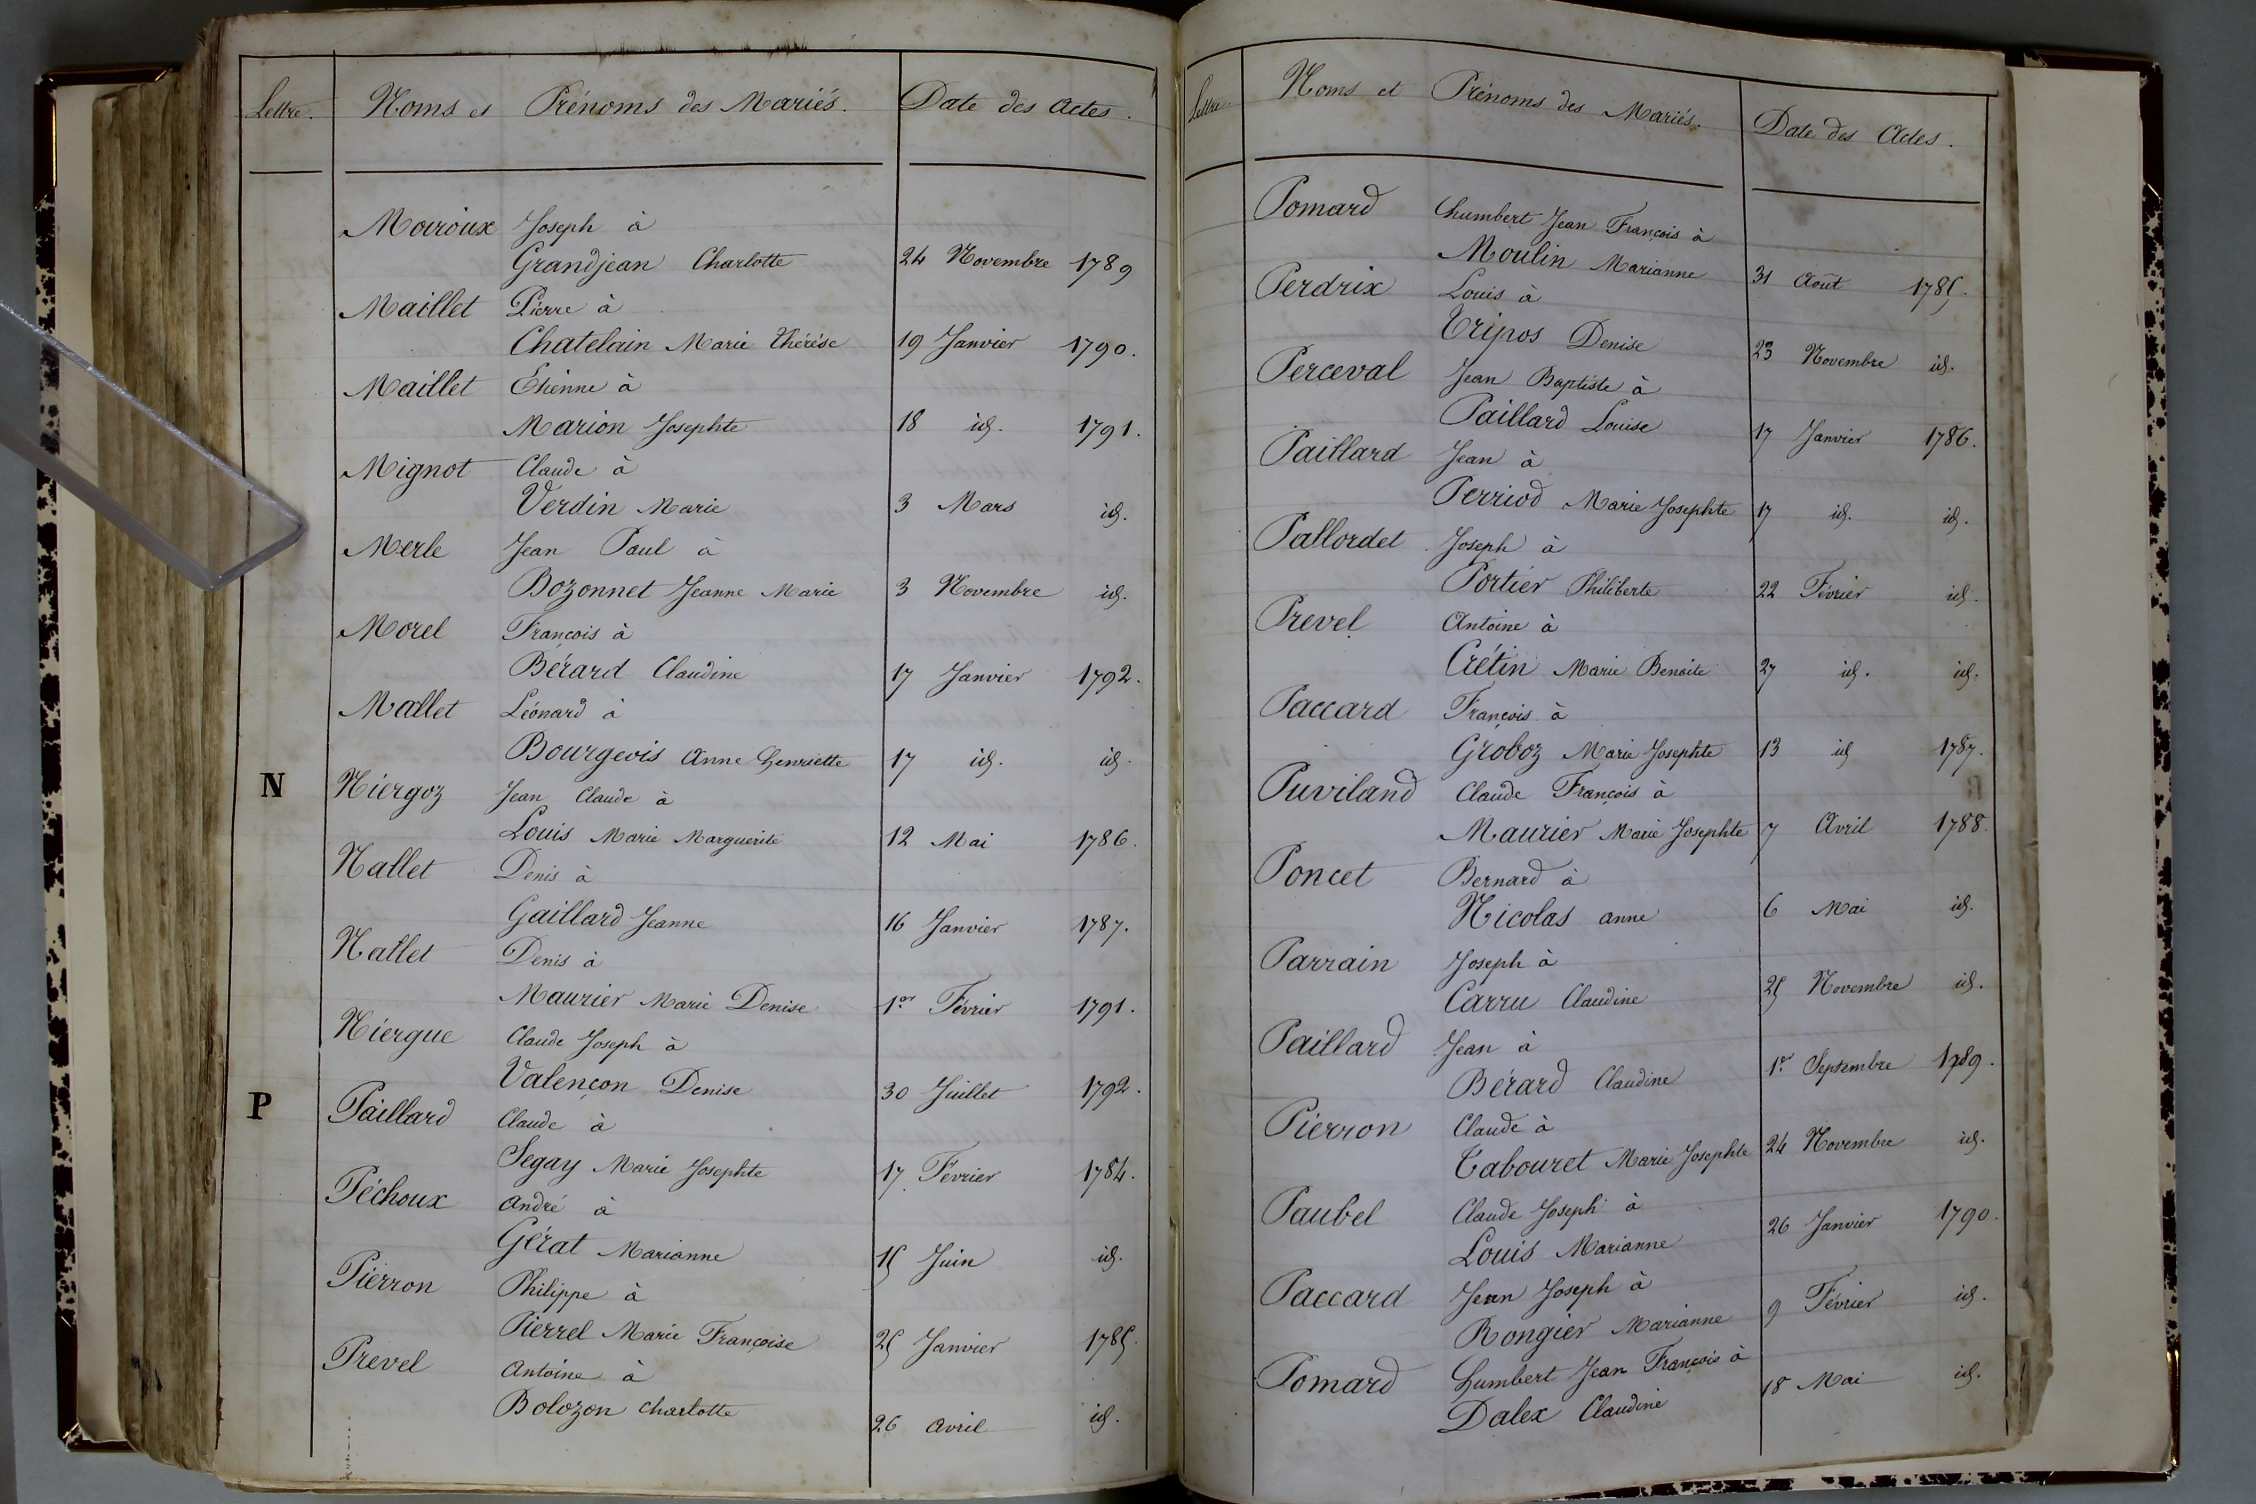 Lettre. Noms et Prénoms des Mariés. Date des Actes.
Moiroux Joseph à
Grandjean Charlotte 24 Novembre 1789
Maillet Pierre à
Chatelain Marie Thérèse 19 Janvier 1790.
Maillet Étienne à
Marion Josephte 18 id. 1791.
Mignot Claude à
Verdin Marie 3 Mars id.
Merle Jean Paul à
Bozonnet Jeanne Marie 3 Novembre id.
Morel François à
Bérard Claudine 17 Janvier 1792.
Mallet Léonard à
Bourgeois Anne Henriette 17 id. id.
N Niergoz Jean Claude à
Louis Marie Marguerite 12 Mai 1786.
Nallet Denis à
Gaillard Jeanne 16 Janvier 1787.
Nallet Denis à
Maurier Marie Denise 1er Février 1791.
Niergue Claude Joseph à
Valençon Denise 30 Juillet 1792.
P Paillard Claude à
Segay Marie Josephte 17 Février 1784.
Péchoux André à
Gérat Marianne 15 Juin id.
Pierron Philippe à
Pierrel Marie Françoise 25 Janvier 1785.
Prevel Antoine à
Bolozon Charlotte 26 Avril id.
Lettre Noms et Prénoms des Mariés. Date des Actes.
Pomard humbert Jean François à
Moulin Marianne 31 Août 1785.
Perdrix Louis à
Tripos Denise 23 Novembre id.
Perceval Jean Baptiste à
Paillard Louise 17 Janvier 1786.
Paillard Jean à
Perriod Marie Josephte 17 id. id.
Pallordet Joseph à
Portier Philiberte 22 Février id.
Prevel Antoine à
Crétin Marie Benoite 27 id. id.
Paccard François à
Groboz Marie Josephte 13 id 1787.
Puviland Claude François à
Maurier Marie Josephte 7 Avril 1788.
Poncet Bernard à
Nicolas anne 6 Mai id.
Parrain Joseph à
Carru Claudine 25 Novembre id.
Paillard Jean à
Bérard Claudine 1er Septembre 1789.
Pierron Claude à
Tabouret Marie Josephte 24 Novembre id.
Paubel Claude Joseph à
Louis Marianne 26 Janvier 1790.
Paccard Jean Joseph à
Rongier Marianne 9 Février id.
Pomard humbert Jean François à
Dalex Claudine 18 Mai id.